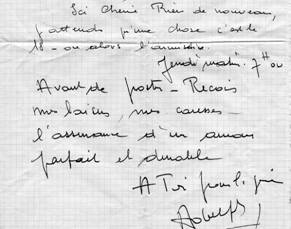 Ici Chérie Rien de nouveau,
j'attends qu'une chose c'est le
18 - ou alors l'armistice.
Jeudi matin. 7H00
Avant de partir - Reçois
mes baisers, mes caresses -
l'assurance d'un amour
parfait et durable
A Toi pour la vie